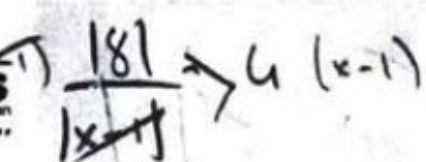 1) |8| / |x-1| > 4 (x-1)